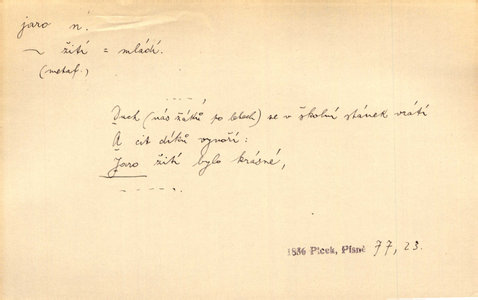 jaro n.
~ žití = mládí.
(metaf.)
- - - - - !
Duch (nás žáků po letech) se v školní stánek vrátí
A cit díků vynoří:
Jaro žití bylo krásné,
- - - - - .
1856 Picek, Písně 77, 23.